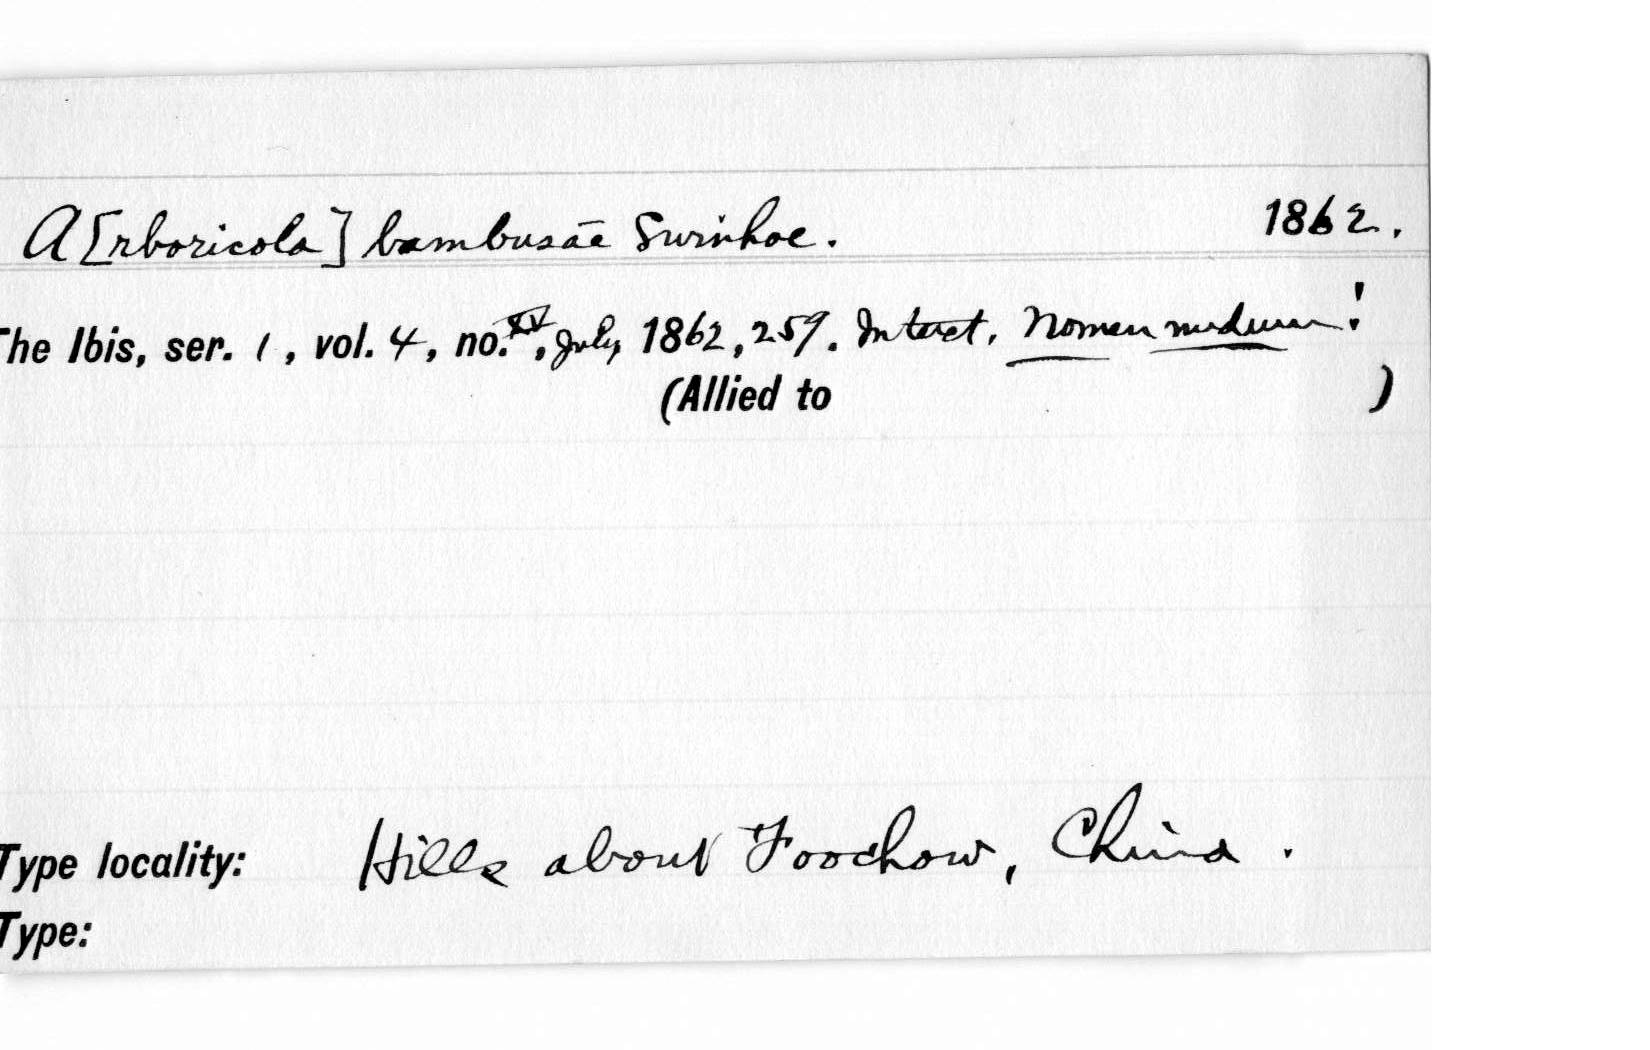 A[rboricola] bambusae Swinhoe. 1862.
The Ibis, ser. 1, vol. 4, no. XV, July 1862, 259. In text. Nomen nudum!
(Allied to )
Type locality: Hills about Foochow, China.
Type: